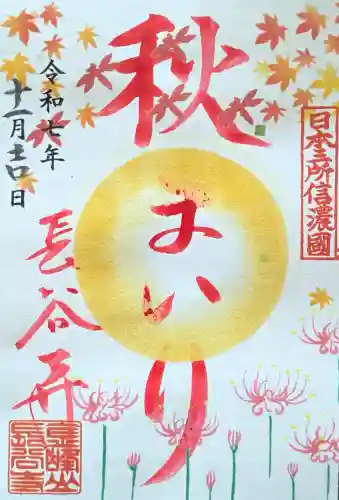 日本三所信濃國
秋まいり
令和七年
十一月吉日
長谷寺